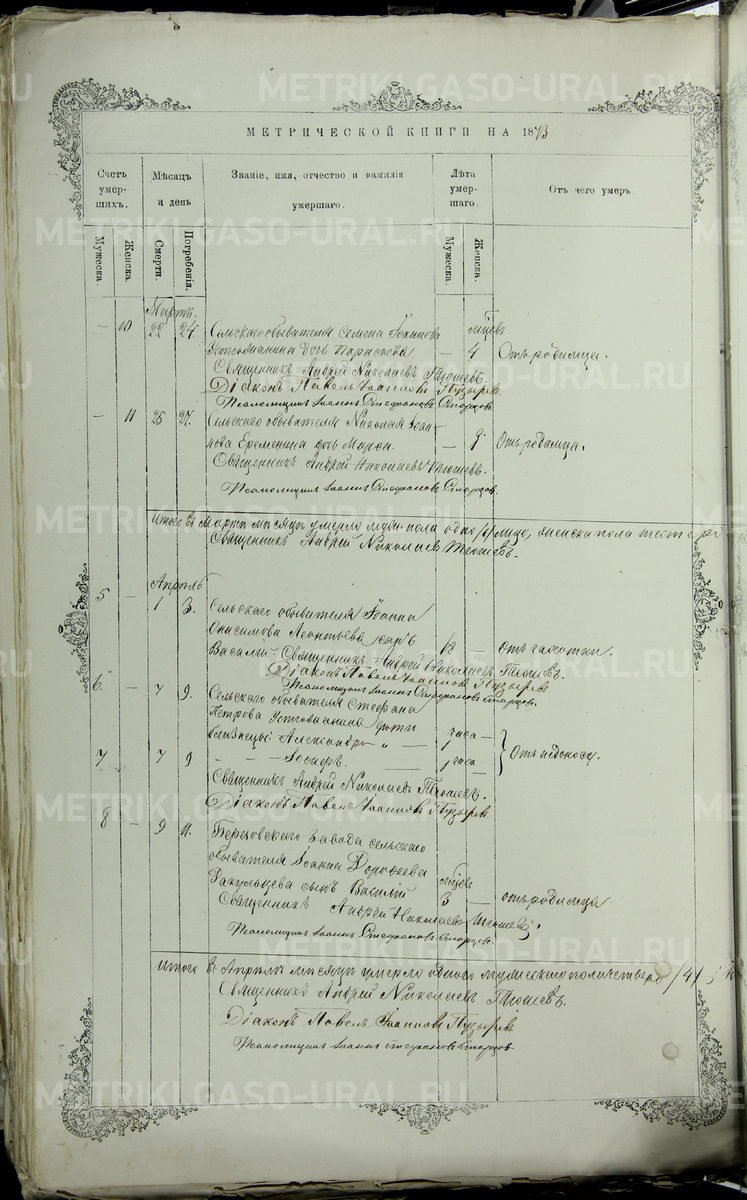 МЕТРИЧЕСКОЙ КНИГИ НА 1873
Счетъ умер-шихъ.
Мѣсяцъ и день
Званіе, имя, отчество и фамилія умершаго.
Лѣта умер-шаго.
Отъ чего умеръ.
Мужеска.
Женска.
Смерти.
Погребенія.
Мужеска.
Женска.
Мартъ.
мѣсяцевъ
— 10 22 24. Сельскаго обывателя Семена Іоаннова
Устюжанина дочь Параскева. — 4 Отъ родимца.
Священникъ Андрей Николаевъ Тюшевъ.
Діаконъ Павелъ Іоанновъ Пузырев
Псаломщикъ Іоаннъ Стефановъ Старцовъ.
— 11 25 27. Сельскаго обывателя Николая Іоан-
нова Еременина дочь — Отъ родимца.
Священникъ Андрей Николаевъ Тюшевъ.
Псаломщикъ Іоаннъ Стефановъ Старцовъ.
Итого въ Мартѣ мѣсяцѣ умерло муж. пола одно лицо, женска пола
Священникъ Андрей Николаевъ Тюшевъ.
Апрѣль
5 — 1 3. Сельскаго обывателя Іоанна
Онисимова Леонтьева сынъ
Василій 18 — Отъ чахотки.
Священникъ Андрей Николаевъ Тюшевъ.
Діаконъ Павелъ Іоанновъ Пузырев
Псаломщикъ Іоаннъ Стефановъ Старцовъ.
6. — 7 9. Сельскаго обывателя Стефана
Петрова Устюжанина дѣти
близнецы: Александръ — часа —
7 — 7 9 — — Іосифъ. 1 часа — Отъ недоноса.
Священникъ Андрей Николаевъ Тюшевъ.
Діаконъ Павелъ Іоанновъ Пузырев
8 — 9 11. Березовскаго завода сельскаго
обывателя Іоанна Дорофеева
мѣсяцевъ
сынъ Василій 3 — отъ родимца
Священникъ Андрей Николаевъ Тюшевъ.
Псаломщикъ Іоаннъ Стефановъ Старцовъ.
Итого въ Апрѣлѣ мѣсяцѣ умерло одного мужескаго пола четверо /4/
Священникъ Андрей Николаевъ Тюшевъ.
Діаконъ Павелъ Іоанновъ Пузырев
Псаломщикъ Іоаннъ Стефановъ Старцов
METRIKI.GASO-URAL.RU